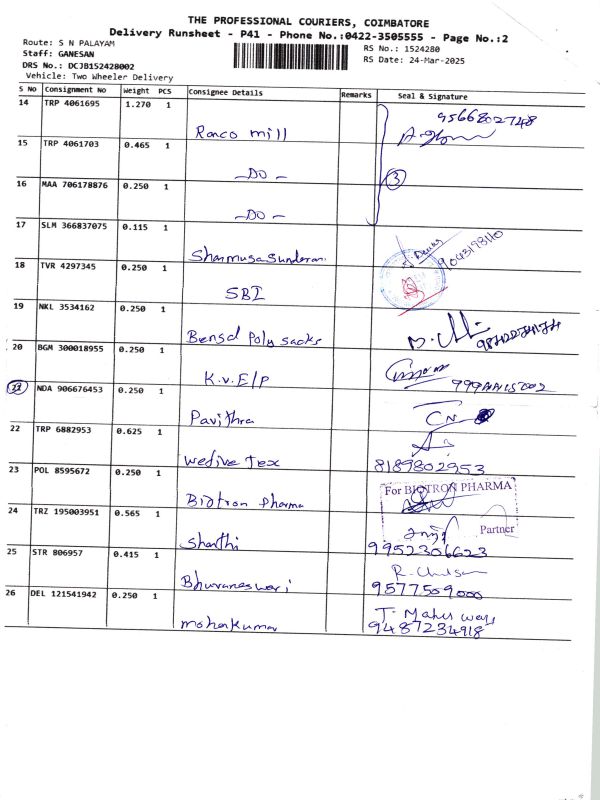 THE PROFESSIONAL COURIERS, COIMBATORE
Delivery Runsheet - P41 - Phone No.:0422-3505555 - Page No.:2
Route: S N PALAYAM
Staff: GANESAN
DRS No.: DCJB152428002
Vehicle: Two Wheeler Delivery
RS No.: 1524280
RS Date: 24-Mar-2025
S No Consignment No Weight PCS Consignee Details Remarks Seal & Signature
14 TRP 4061695 1.270 1 Ranco mill 9566802748
15 TRP 4061703 0.465 1 -DO-
16 MAA 706178876 0.250 1 -DO-
3
17 SLM 366837075 0.115 1 Shanmugasundaram
18 TVR 4297345 0.250 1 SBI
19 NKL 3534162 0.250 1 Bensal Poly sacks
20 BGM 300018955 0.250 1 K.V.E/P
21 NDA 906676453 0.250 1 Pavithra CN
22 TRP 6882953 0.625 1 wedive tex 8189802953
23 POL 8595672 0.250 1 Biotron Pharma
For BIOTRON PHARMA
Partner
24 TRZ 195003951 0.565 1 Shanthi 9952306623
25 STR 806957 0.415 1 Bhuvaneswari 9577509000
26 DEL 121541942 0.250 1 mohankumar 9487234918